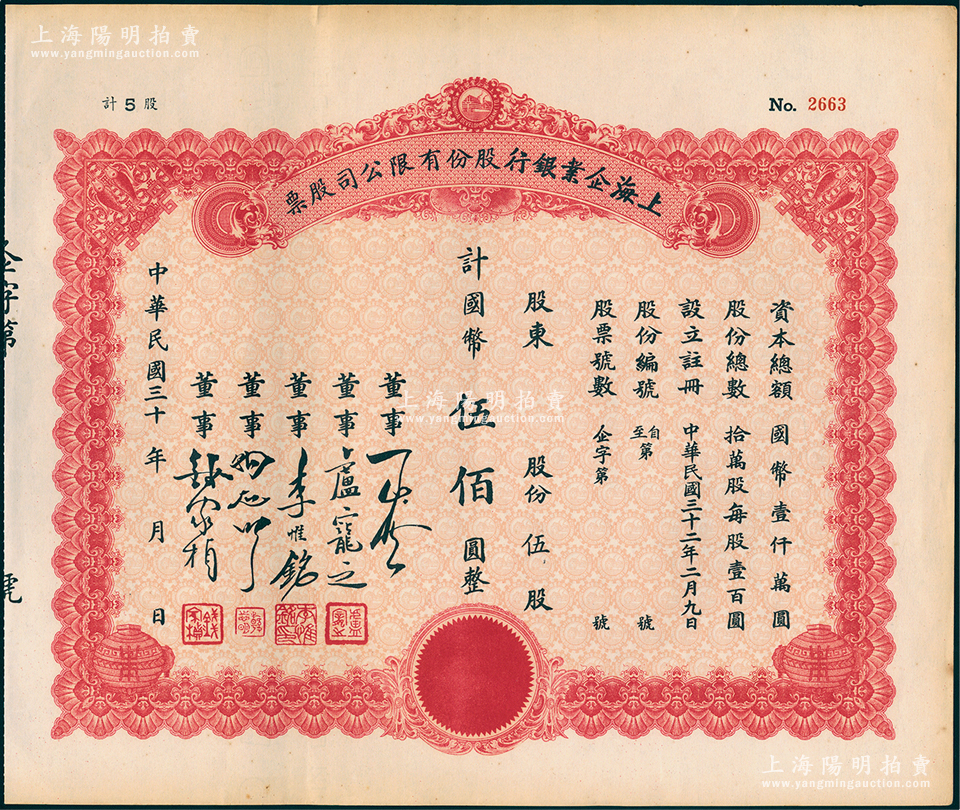 上海陽明拍賣
www.yangmingauction.com
計 5 股
No. 2663
上海企業銀行股份有限公司股票
資本總額 國幣壹仟萬圓
股份總數 拾萬股每股壹百圓
設立註冊 中華民國三十二年二月九日
股份編號 自至第 號
股票號數 企字第 號
股東 股份 伍 股
計國幣 伍佰 圓整
董事
董事 盧寵之
董事 李惟銘
董事
董事 錢家楨
中華民國三十 年 月 日
企字第 號
上海陽明拍賣
www.yangmingauction.com
上海陽明拍賣
www.yangmingauction.com